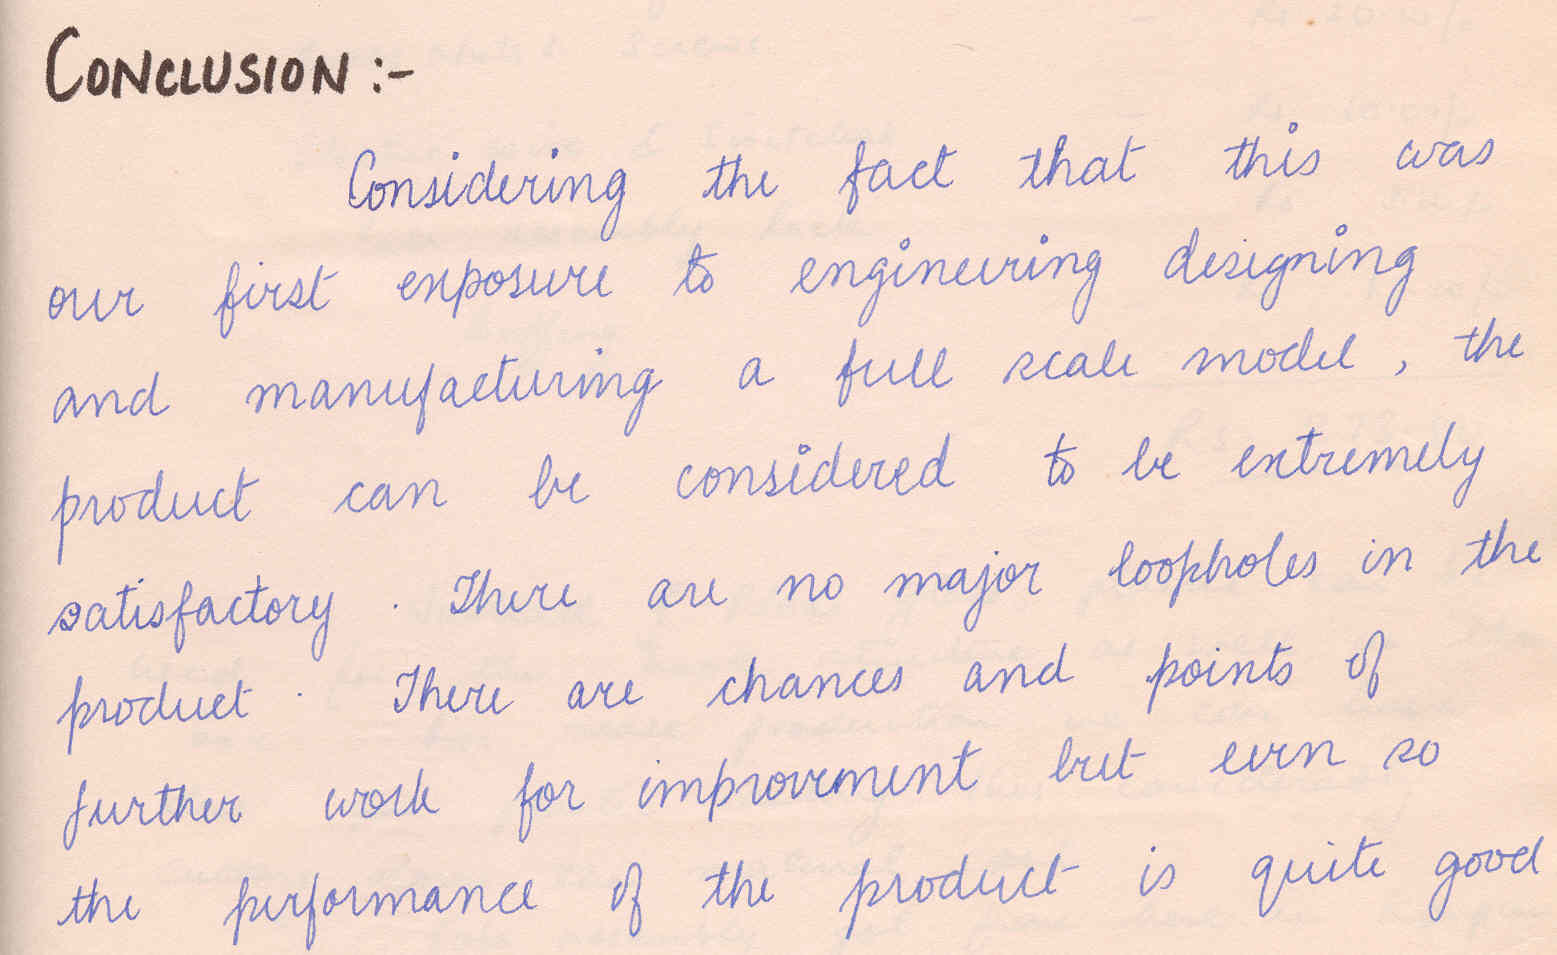 CONCLUSION :-
Considering the fact that this was
our first exposure to engineering designing
and manufacturing a full scale model, the
product can be considered to be extremely
satisfactory. There are no major loopholes in the
product. There are chances and points of
further work for improvement but even so
the performance of the product is quite good